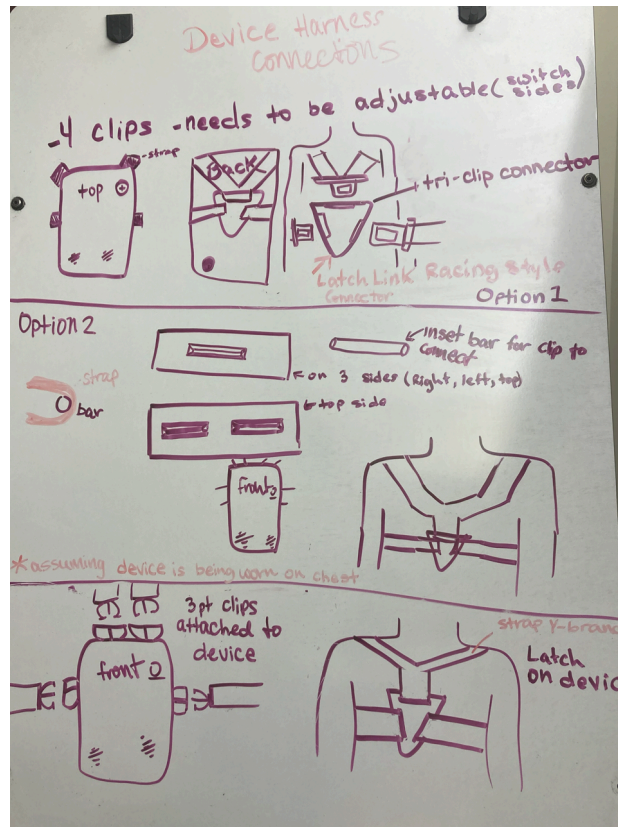 Device Harness
Connections
-4 clips -needs to be adjustable (switch sides)
-strap
top
Back
tri-clip connector
Latch Link Racing Style
Connector
Option 1
Option 2
inset bar for clip to
connect
on 3 sides (Right, left, top)
strap
bar
top side
front
*assuming device is being worn on chest
3pt clips
attached to
device
front
strap Y-bran
Latch
on devic